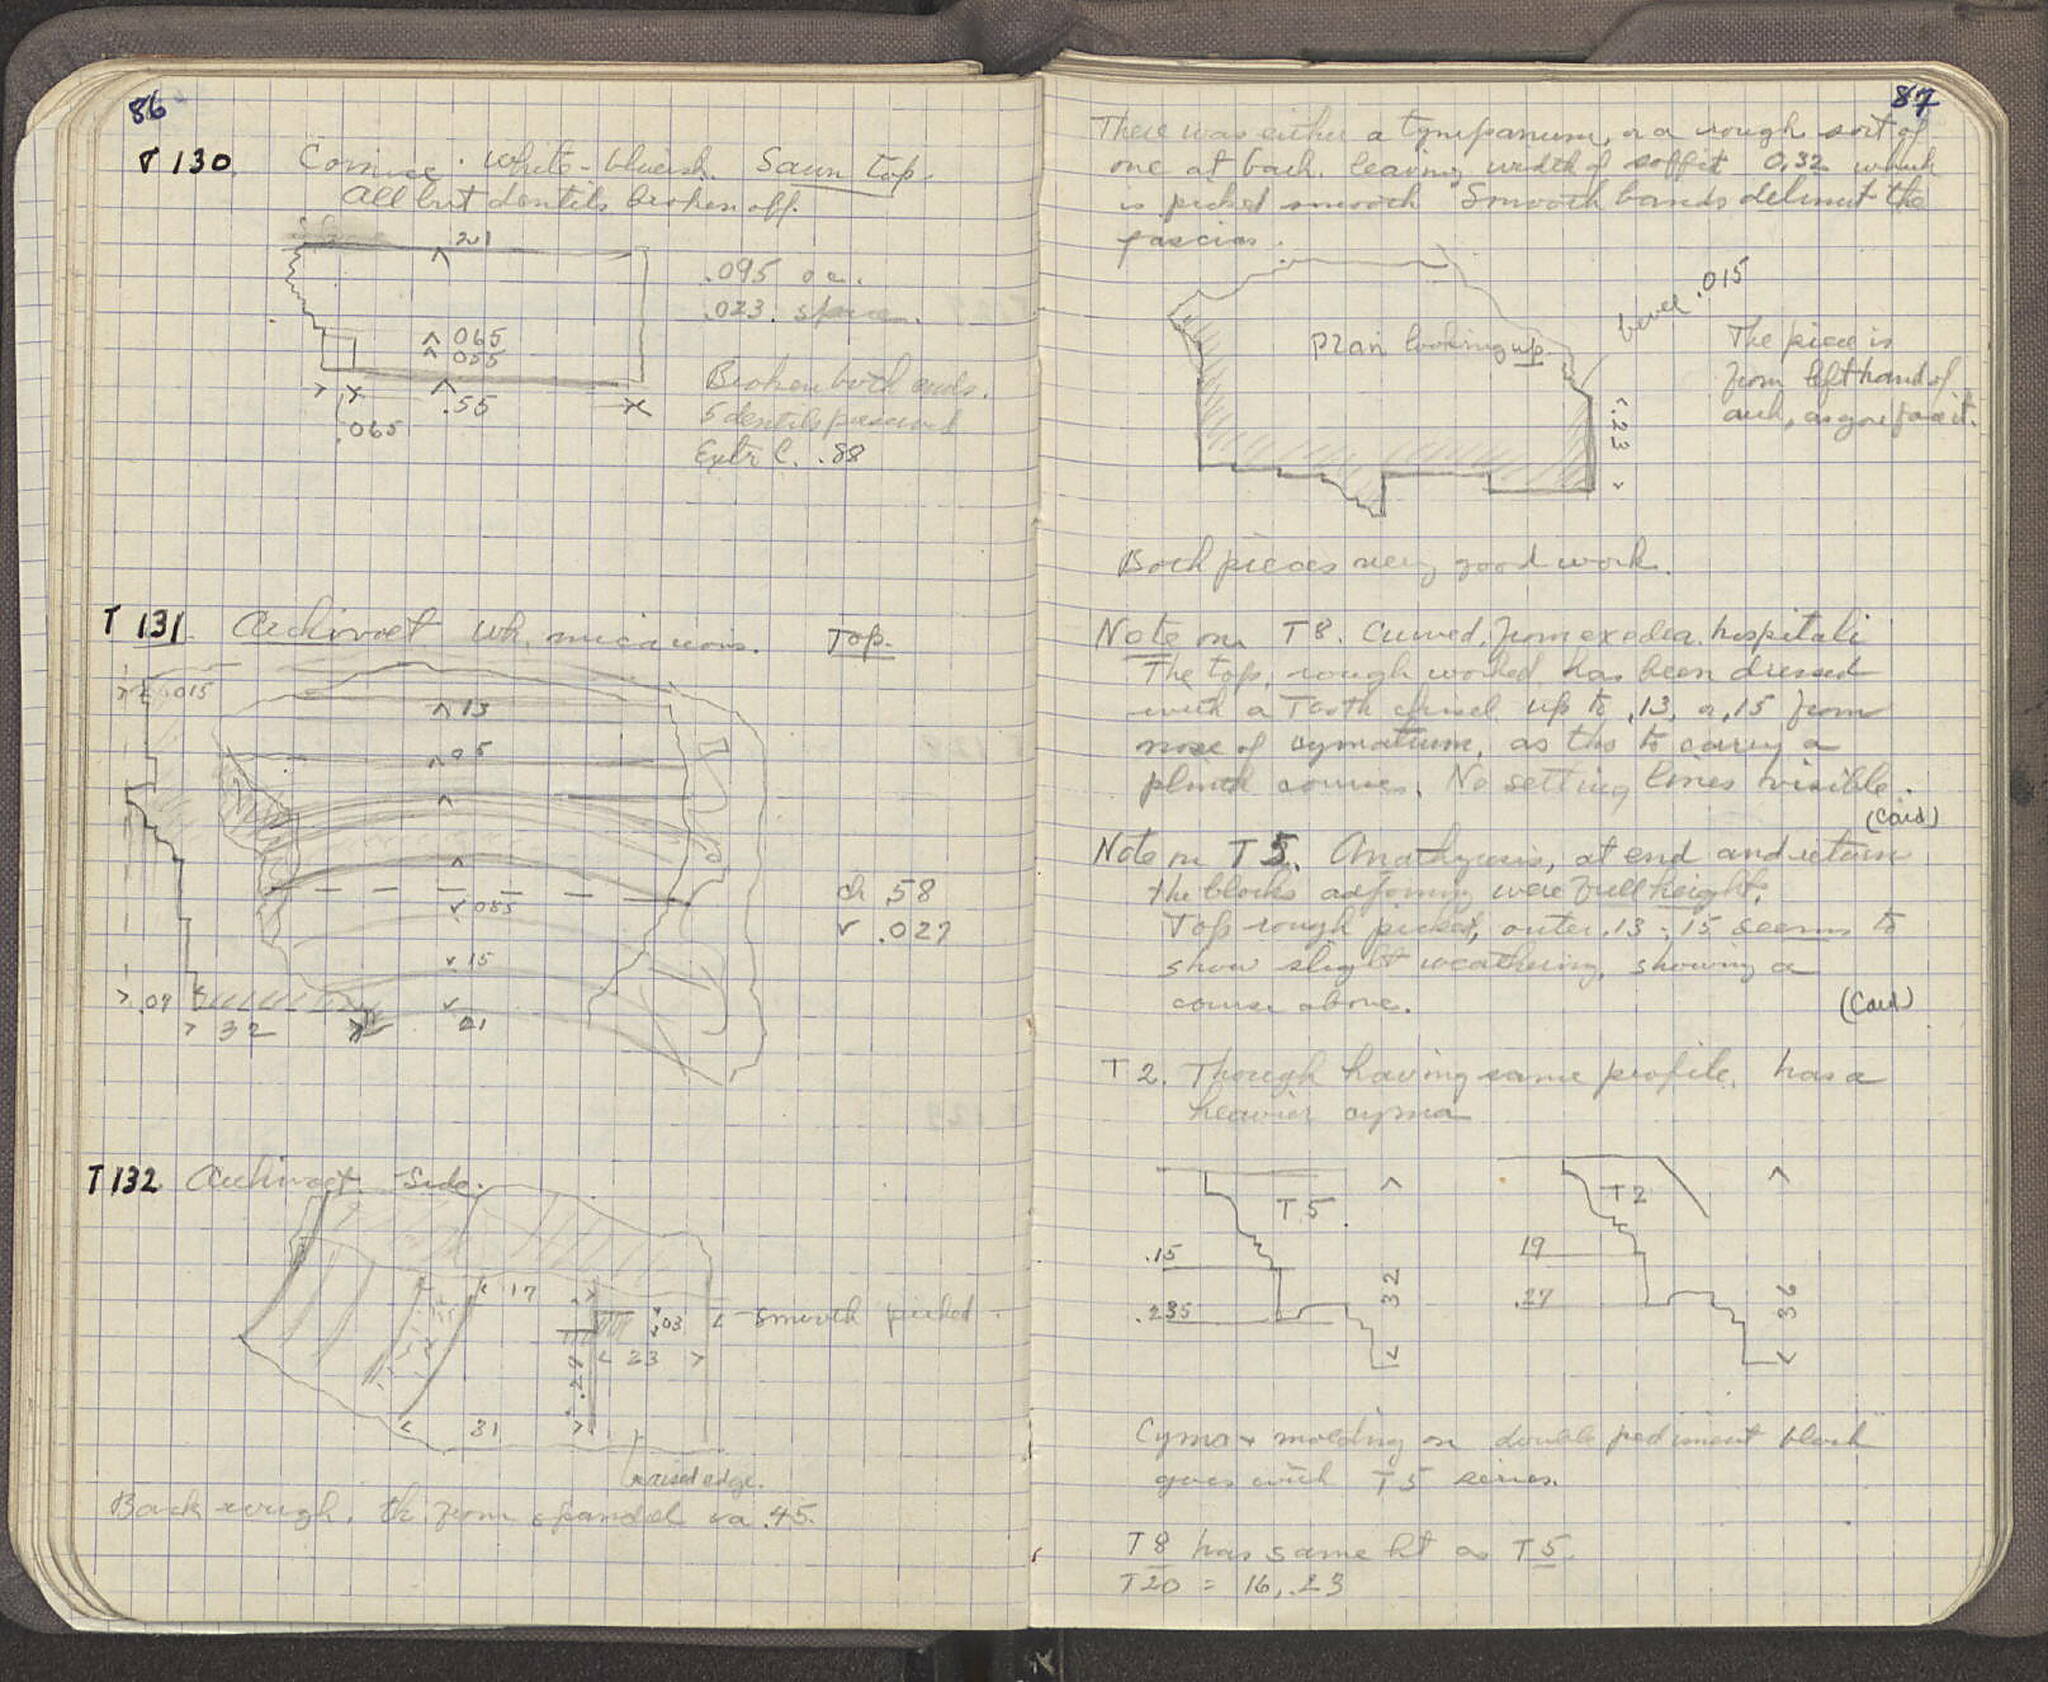 86
T 130. Cornice. White-blueish. Sawn top.
All but dentils broken off.
.21
.095 oc.
.023. spaces.
.065
.055
Broken both ends.
.55
5 dentils preserved
.065
Extr C. .88
T 131. Archivolt Wh. micaceous. Top.
.015
.13
.05
ch .58
.055
v .027
.15
.07
.32
.21
T 132 Archivolt. Side.
.17
.03 smooth picked.
.23
.31
raised edge.
Back rough. th. from spandel ca .45.
87
There was either a tympanum, or a rough sort of
one at back. leaving width of soffit 0,32 which
is picked smooth Smooth bands delimit the
fascias.
bevel .015
Plan looking up.
The piece is
from left hand of
arch, as you face it.
.23
Both pieces very good work.
Note on T8. Curved, from exedra. hospitali
The top, rough worked has been dressed
with a Tooth chisel up to .13, or .15 from
nose of cymatium, as tho to carry a
plinth course. No setting lines visible.
(Card)
Note on T5. Anathyrosis, at end and return
the blocks adjoining were full height.
Top rough picked, outer .13-.15 seems to
show slight weathering, showing a
course above.
(Card)
T2. Though having same profile, has a
heavier cyma
T5.
T2
.15
19
32
36
.235
.27
Cyma + molding on double pediment block
goes with T5 series.
T8 has same ht as T5.
T20 = 16, .23